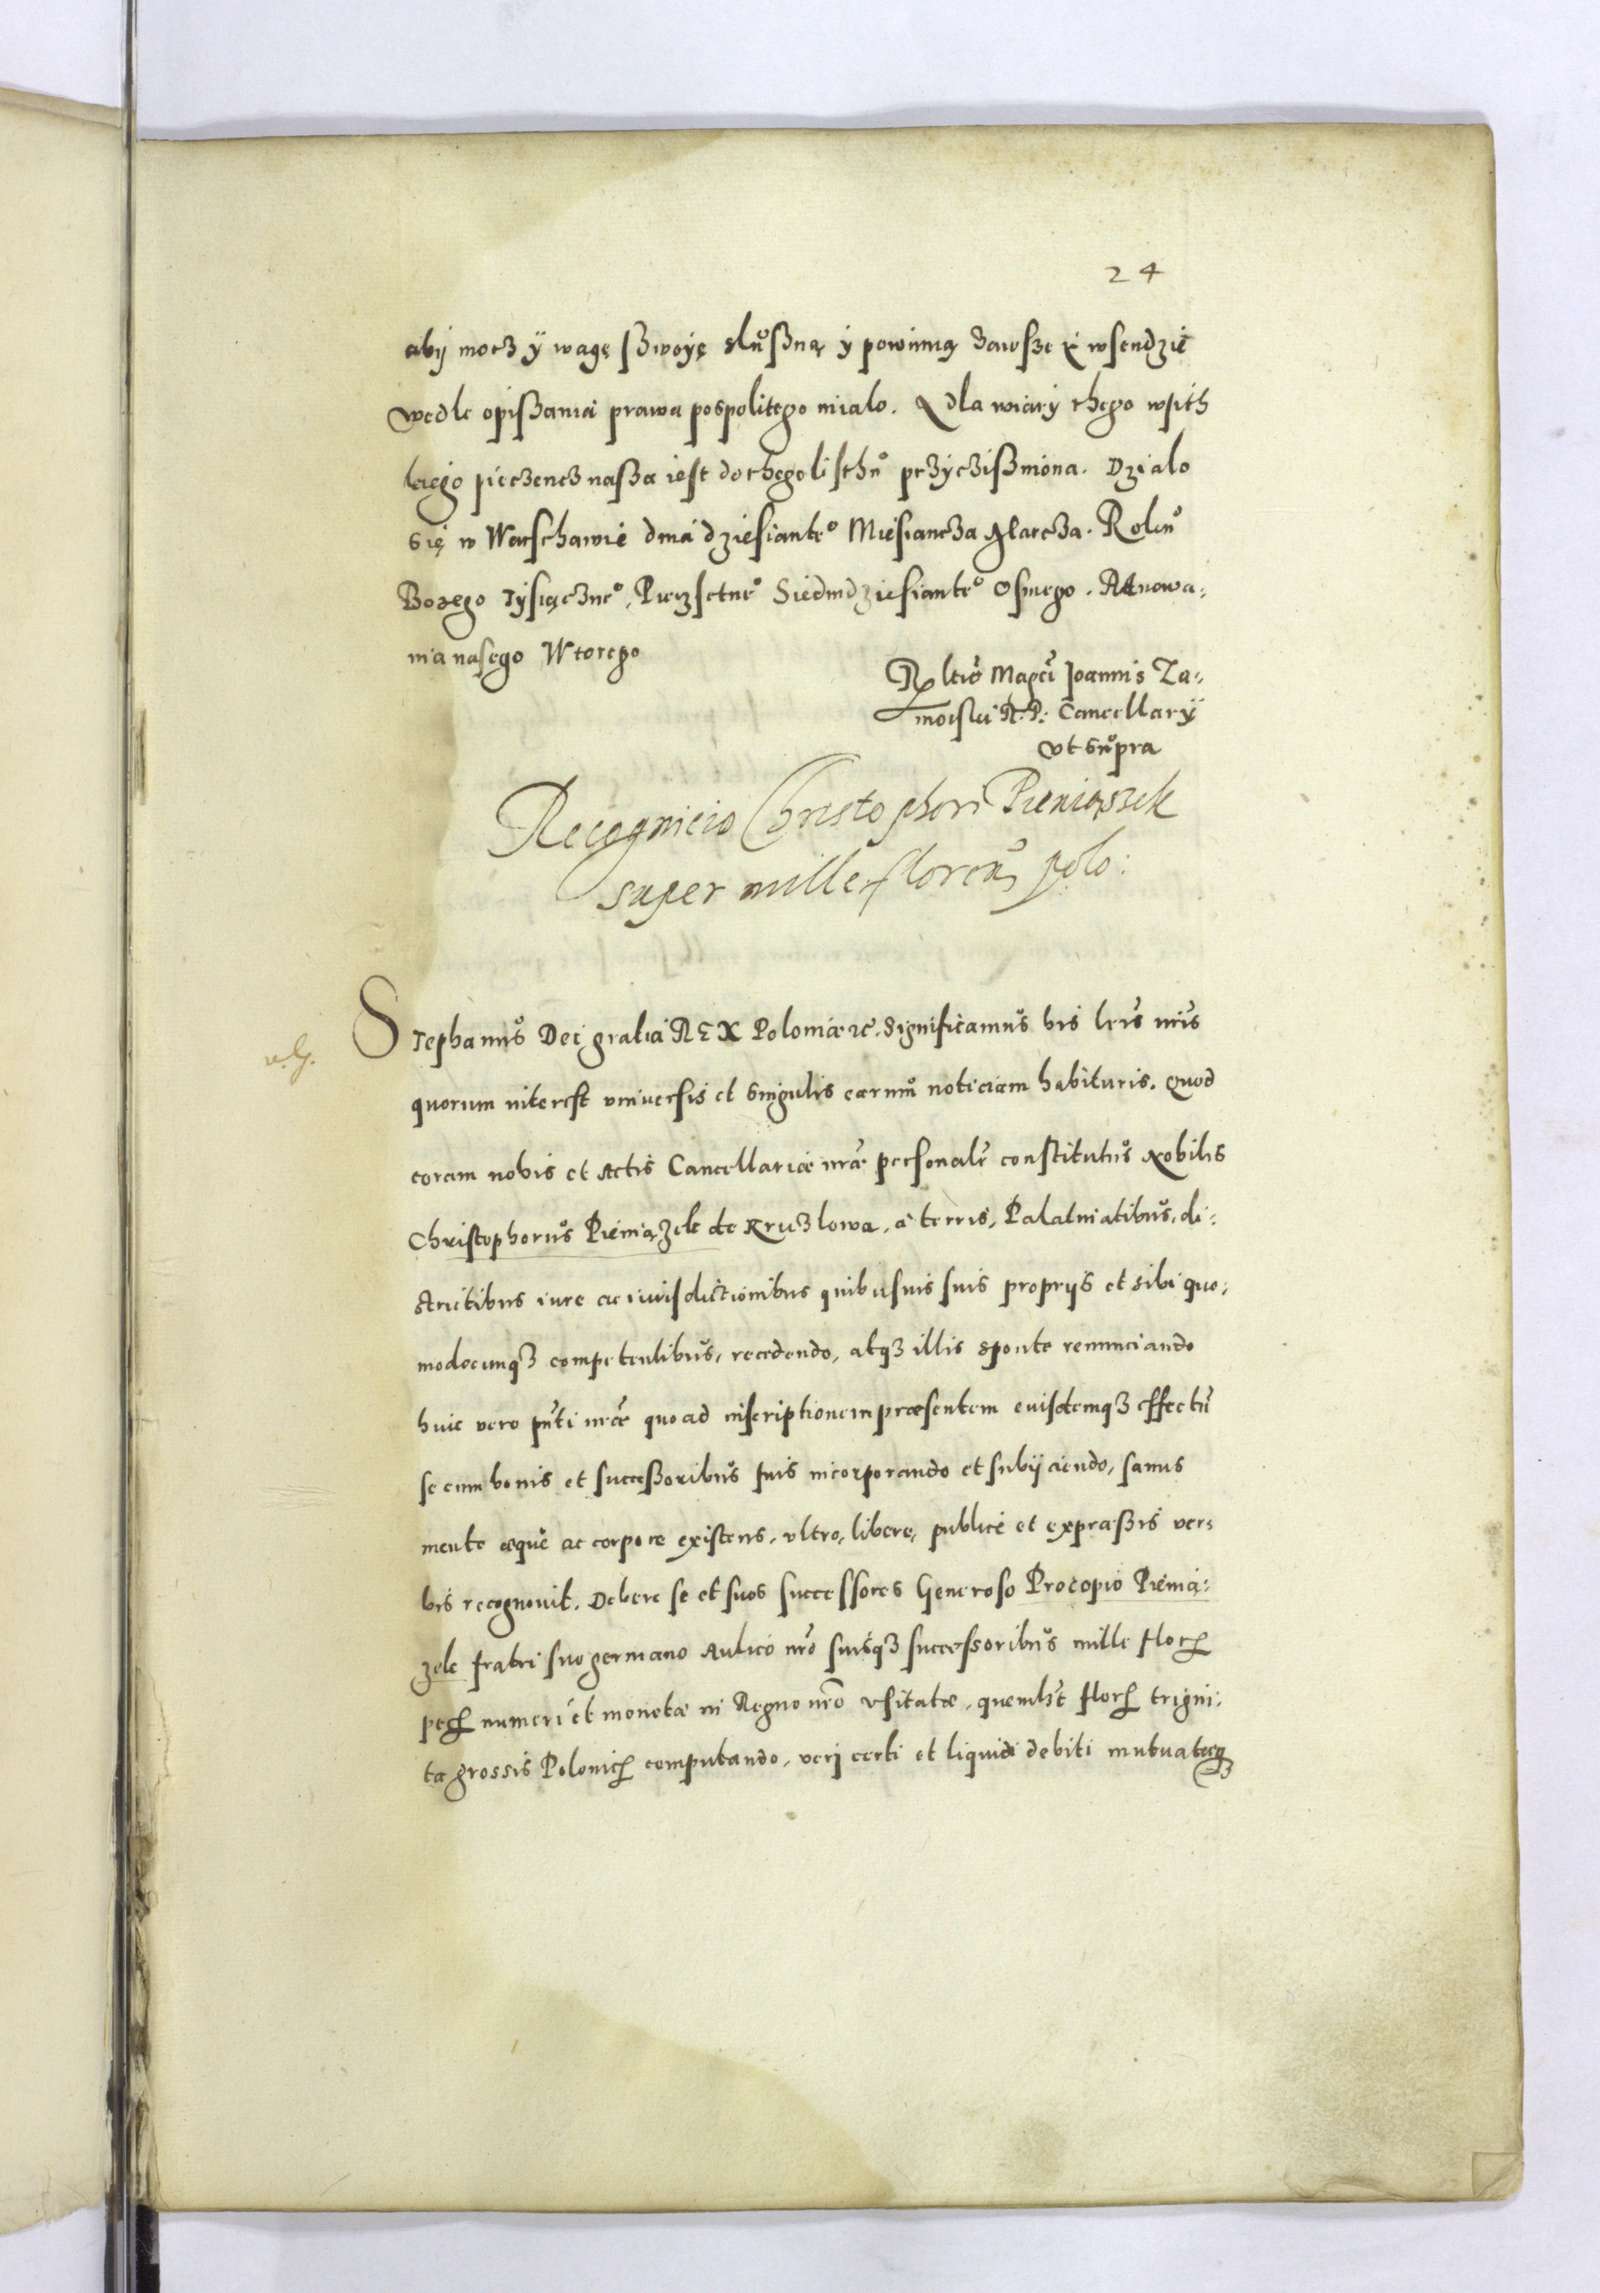 24
abÿ mocz ÿ wagę ßwoyę słußną ÿ powinną zawsze ÿ wsendzie
wedle opißania prawa pospolitego mialo. A dla wiarÿ thego wsith
kiego pieczencz naßza iest do thego listhu przÿczißniona. Dzialo
się w Warschawie dnia dziesiante° Miesiancza Marcza. Roku
Bozego Tÿsięczne°, Piezsetne° Siedmdziesiante° Osmego. A Krowa-
nia nasego Wtorego
Rltio Magci Joannis Za-
moiski R. P. Cancellarÿ
vt supra
Recognicio Christophori Pieniąszek
super mille floren polo:
Stephanus Dei gratia REX Poloniæ etc. Significamus his lris nris
quorum interest vniuersis et singulis earum noticiam habituris. Quod
coram nobis et Actis Cancellariæ nræ personalr constitutus Nobilis
Christophorus Pieniązek de Kruzlowa, a terris, Palatinatibus, di-
strictibus iure ac iurisdictionibus quibusuis suis proprijs et sibi quo-
modocunq3 competentibus, recedendo, atq3 illis sponte renunciando
huic vero pnti nræ quo ad inscriptionem præsentem euisdemq3 effectu
se cum bonis et successoribus suis incorporando et subijciendo, sanus
mente æque ac corpore existens, vltro, libere, publice et expræssis ver-
bis recognouit. Debere se et suos successores Generoso Procopio Pienią-
zek fratri suo germano Aulico nro suisq3 successoribus mille flor
pec numeri et monetæ in Regno nro vsitatæ, quemlbt flor trigin-
ta grossis Polonic computando, veri certi et liquidi debiti mutuatæq3